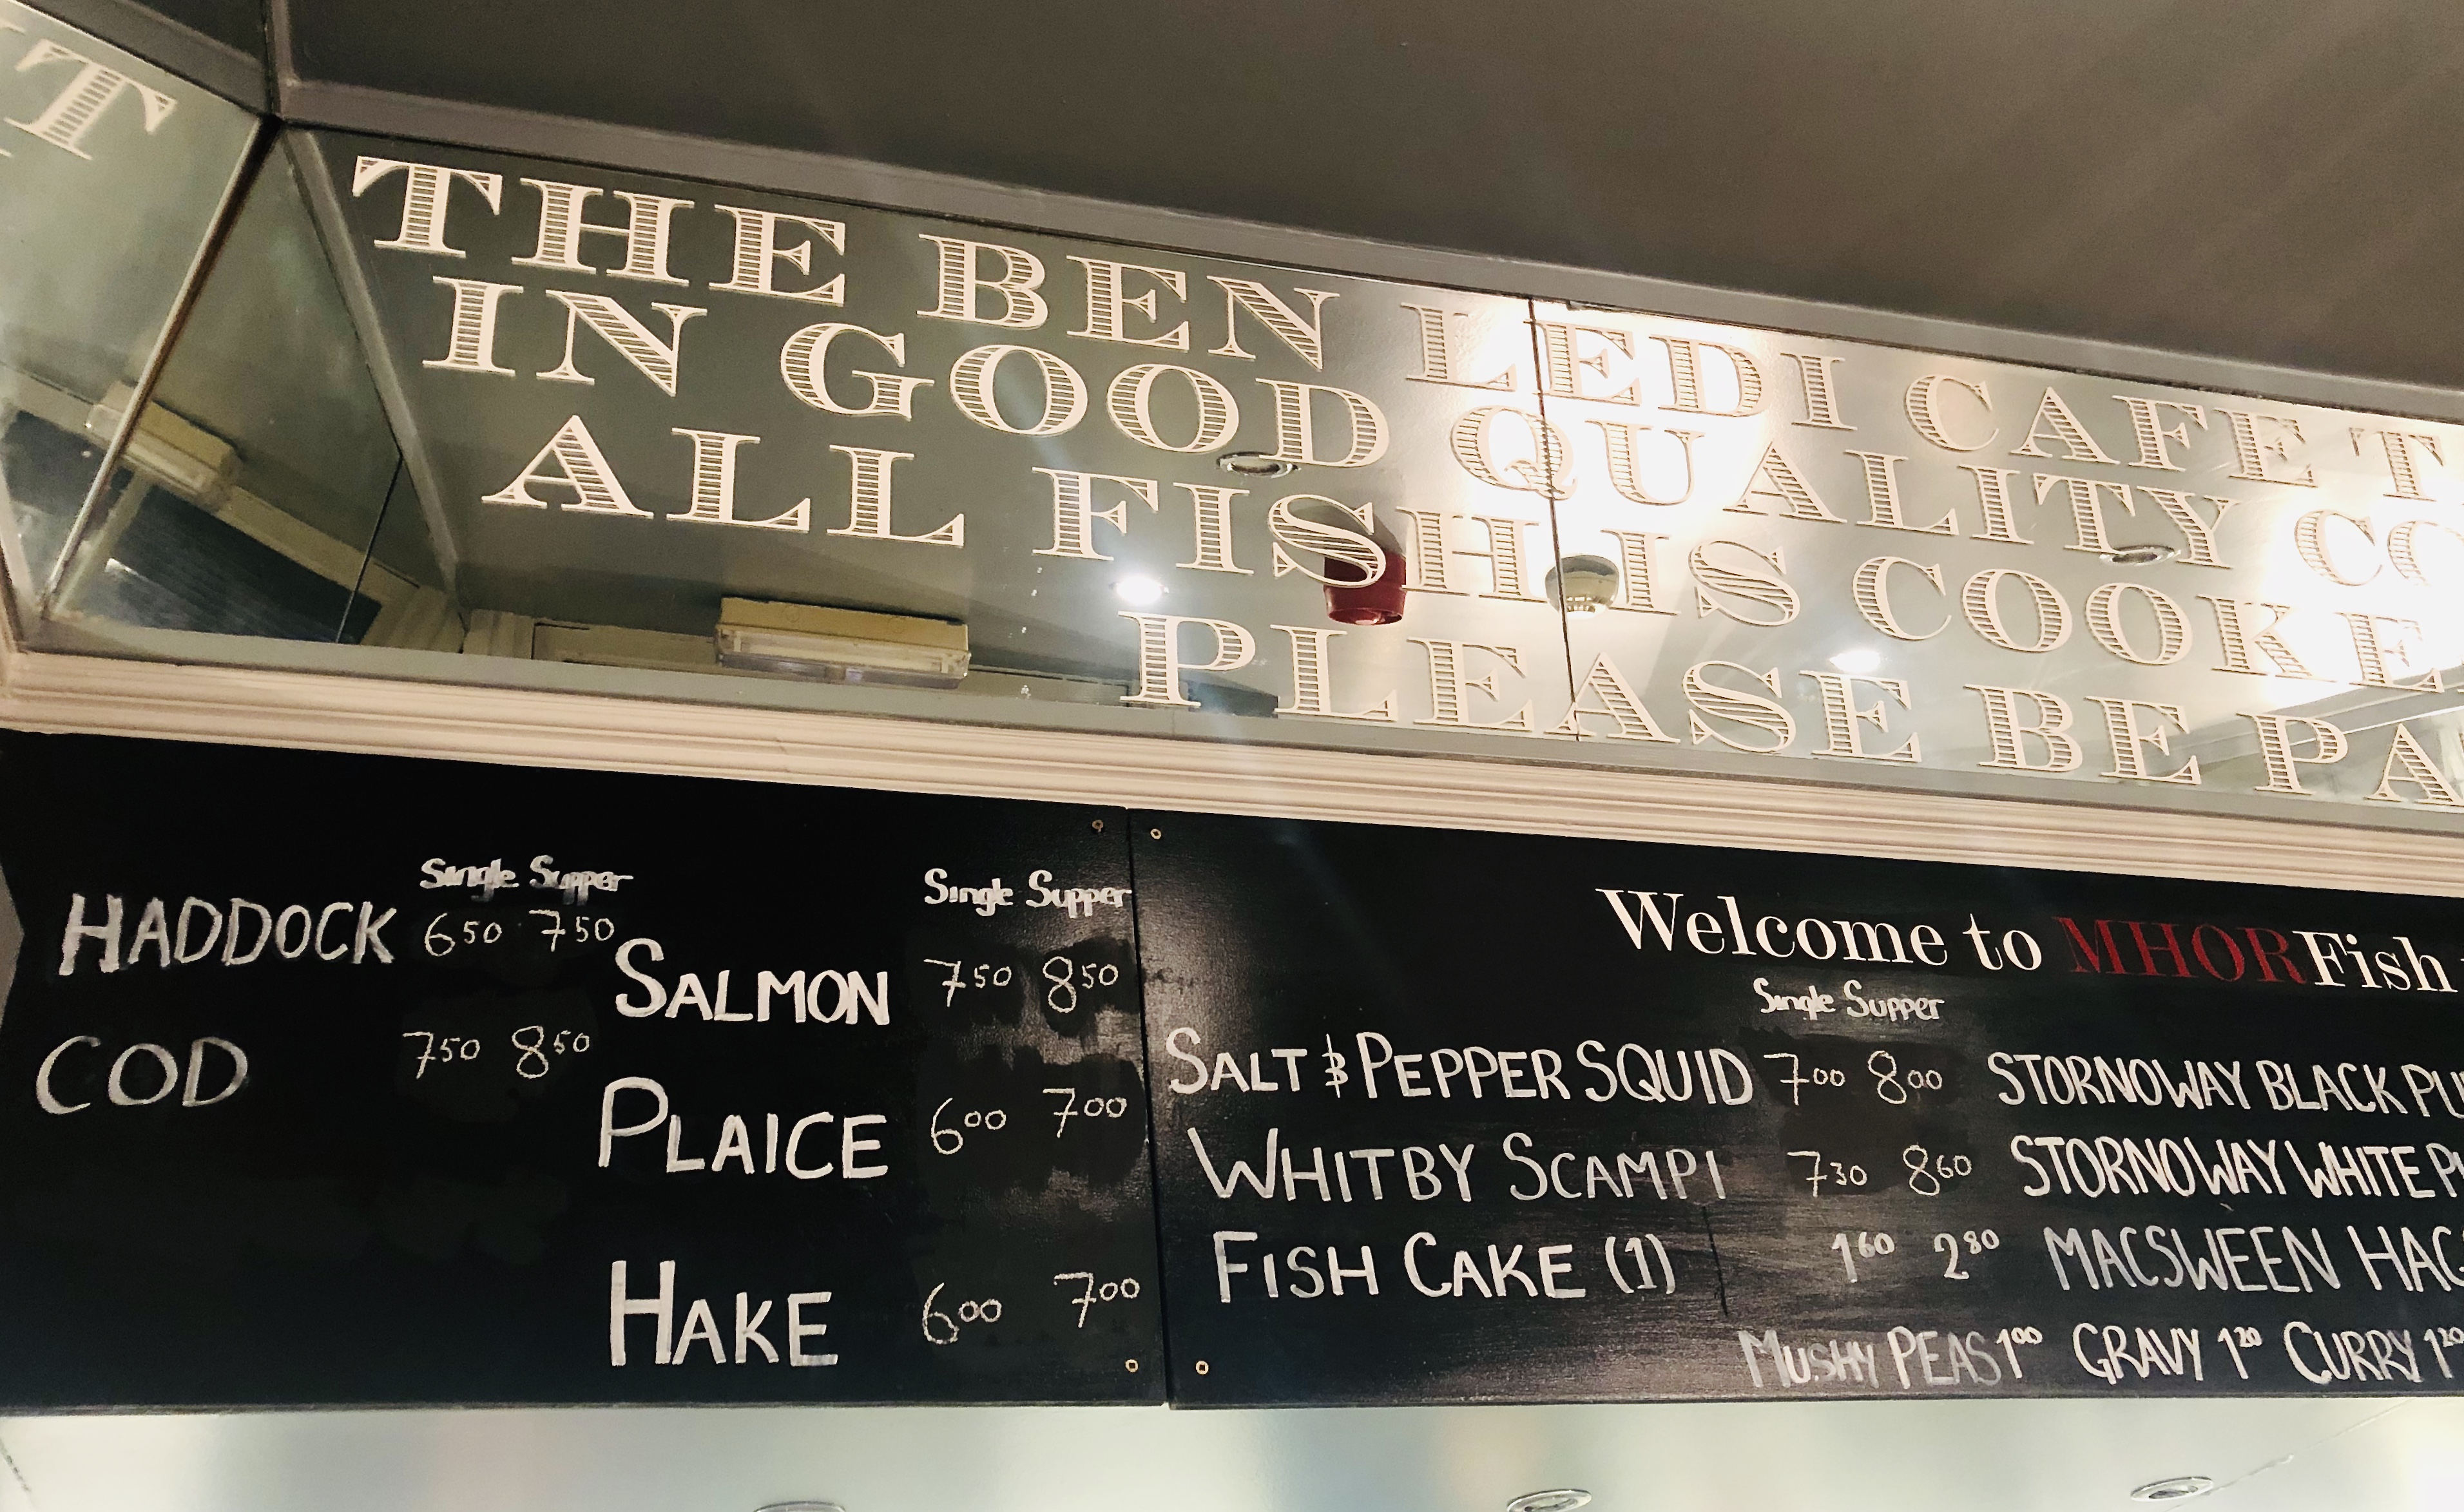 T
THE BEN LEDI CAFE T
IN GOOD QUALITY CO
ALL FISH IS COOKE
PLEASE BE PA
Single Supper
HADDOCK 650 750
COD 750 850
Single Supper
SALMON 750 850
PLAICE 600 700
HAKE 600 700
Welcome to MHORFish
Single Supper
SALT & PEPPER SQUID 700 800 STORNOWAY BLACK PU
WHITBY SCAMPI 730 860 STORNOWAY WHITE PU
FISH CAKE (1) 160 280 MACSWEEN HAG
MUSHY PEAS 100 GRAVY 120 CURRY 120